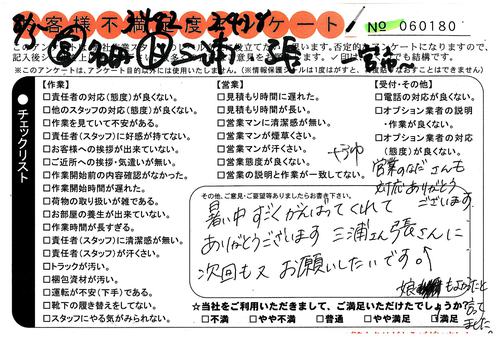 お客様不満足度アンケート
No 060180
※このアンケートは、アンケート目的以外には使用いたしません。(情報保護シールは1度はがすと、再度貼りなおすことはできません)
チェックリスト
【作業】
□責任者の対応(態度)が良くない。
□他のスタッフの対応(態度)が良くない。
□作業を見ていて不安がある。
□責任者(スタッフ)に好感が持てない。
□お客様への挨拶が出来ていない。
□ご近所への挨拶・気遣いが無い。
□作業開始前の内容確認がなかった。
□作業開始時間が遅れた。
□荷物の取り扱いが雑である。
□お部屋の養生が出来ていない。
□作業時間が長すぎる。
□責任者(スタッフ)に清潔感が無い。
□責任者(スタッフ)が汗くさい。
□トラックが汚い。
□梱包資材が汚い。
□運転が不安(下手)である。
□靴下の履き替えをしてない。
□スタッフにやる気がみられない。
【営業】
□見積もり時間に遅れた。
□見積もり時間が長い。
□営業マンに清潔感が無い。
□営業マンが煙草くさい。
□営業マンが汗くさい。
□営業態度が良くない。
□営業の説明と作業が一致してない。
【受付・その他】
□電話の対応が良くない。
□オプション業者の説明
・作業が良くない。
□オプション業者の対応
(態度)が良くない。
営業のなださんも
対応ありがとう
ございます
その他、ご意見・ご要望等ありましたらお書き下さい。
暑い中すごくがんばってくれて
ありがとうございます 三浦さん張さんに
次回も又お願いしたいです。
娘もよろこんで
言って
ました
☆当社をご利用いただきまして、ご満足いただけたでしょうか?
□不満 □やや不満 □普通 □やや満足 □満足